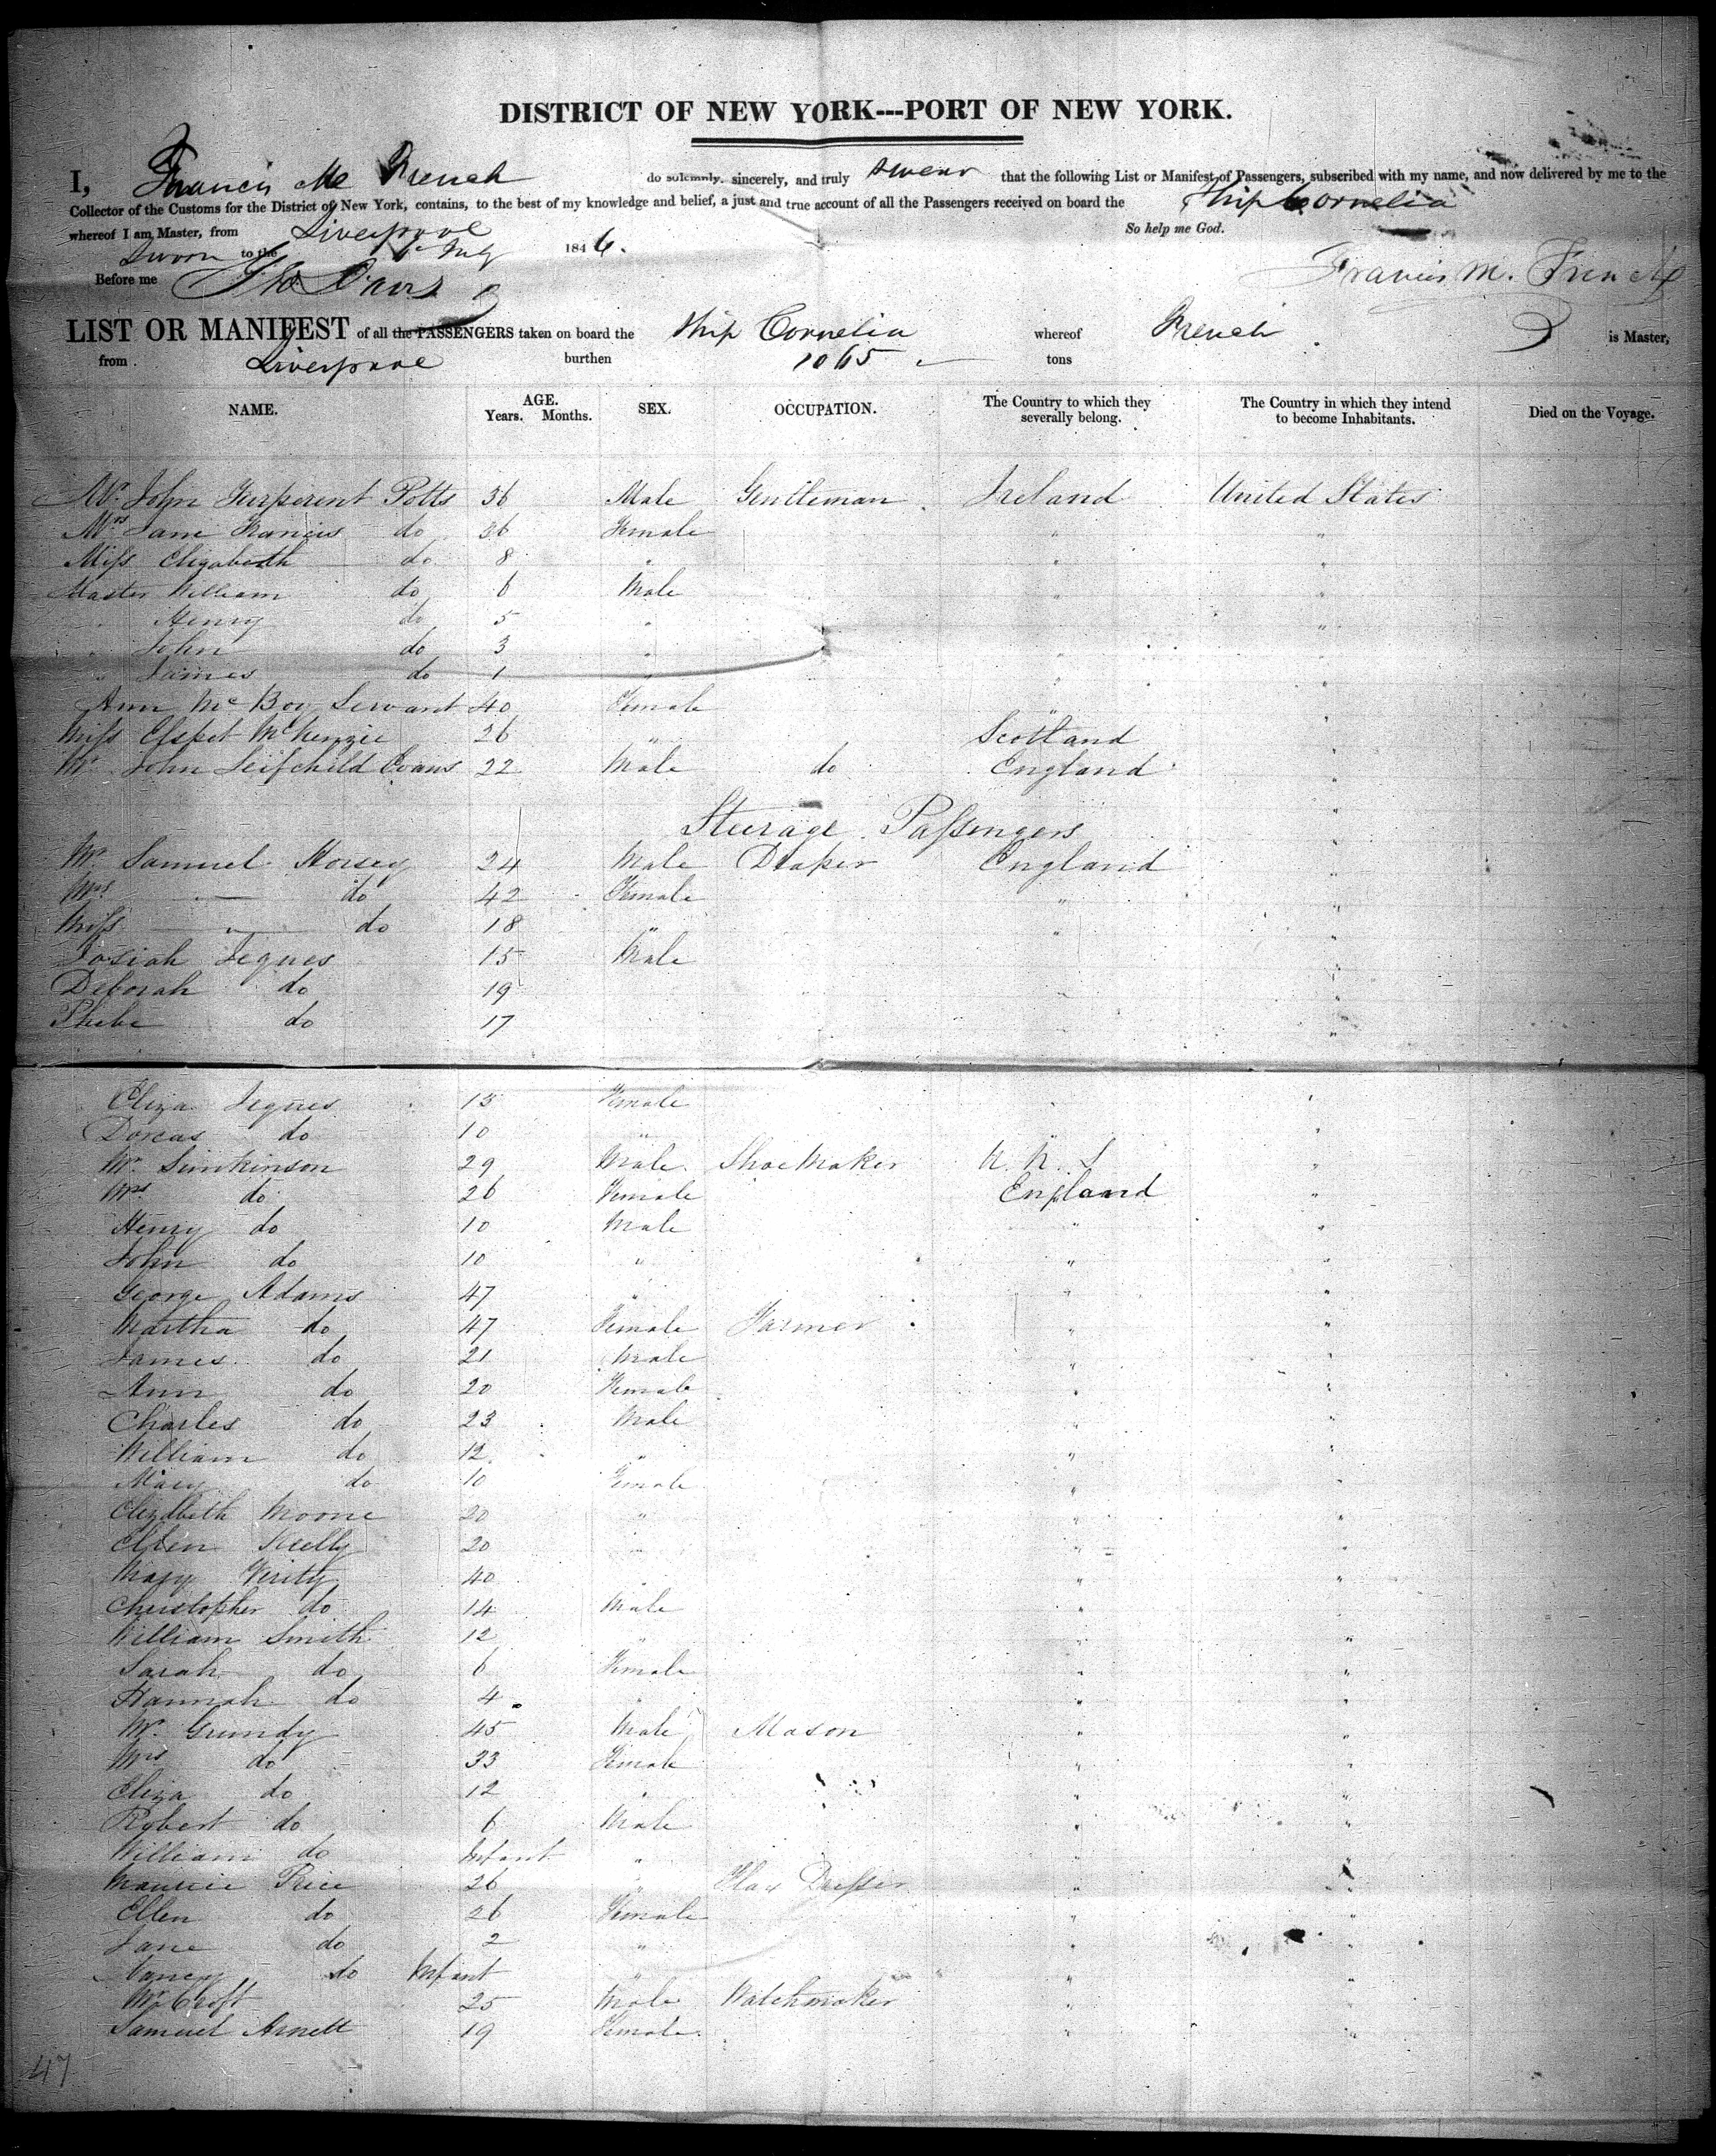 DISTRICT OF NEW YORK---PORT OF NEW YORK.
I, Francis M French do solemnly, sincerely, and truly swear that the following List or Manifest of Passengers, subscribed with my name, and now delivered by me to the
Collector of the Customs for the District of New York, contains, to the best of my knowledge and belief, a just and true account of all the Passengers received on board the Ship Cornelia
whereof I am Master, from Liverpool So help me God.
Sworn to the July 1846.
Before me Francis M. French
LIST OR MANIFEST of all the PASSENGERS taken on board the Ship Cornelia whereof French is Master,
from Liverpool burthen 1065 tons
NAME. AGE. Years. Months. SEX. OCCUPATION. The Country to which they severally belong. The Country in which they intend to become Inhabitants. Died on the Voyage.
Mr John Potts 36 Male Gentleman Ireland United States
Mrs Jane Francis do 36 Female " "
Miss Elizabeth do 8 " " "
Master William do 6 Male " "
" Henry do 5 " " "
" John do 3 " " "
" James do 1 " " "
Ann McBoy Servant 40 Female " "
Miss Elspet McKenzie 26 " Scotland "
Mr John Leifchild Evans 22 Male do England "
Steerage Passengers "
Mr Samuel Horsey 24 Male Draper England "
Mrs — do 42 Female " "
Miss — do 18 " " "
Josiah Jeques 15 Male "
Deborah do 19 " "
Phebe do 17 "
Eliza Jeques 15 Female " "
Dorcas do 10 " "
Mr Simkinson 29 Male Shoemaker "
Mrs do 26 Female England "
Henry do 10 Male " "
John do 10 " " "
George Adams 47 " " "
Martha do 47 Female Farmer " "
James do 21 Male " "
Ann do 20 Female " "
Charles do 23 Male " "
William do 12 " " "
Mary do 10 Female " "
Elizabeth Moone 20 " " "
Ellen Kelly 20 " " "
Mary Verity 40 " " "
Christopher do 14 Male " "
William Smith 12 " " "
Sarah do 6 Female " "
Hannah do 4 " " "
Mr Grundy 45 Male Mason " "
Mrs do 33 Female " "
Eliza do 12 " " "
Robert do 6 Male " "
William do Infant " " "
Maurice Price 26 " Flax Dresser " "
Ellen do 26 Female " "
Jane do 2 " " "
Nancy do Infant " " "
Mr Croft 25 Male Watchmaker " "
Samuel Arnett 19 Female " "
47